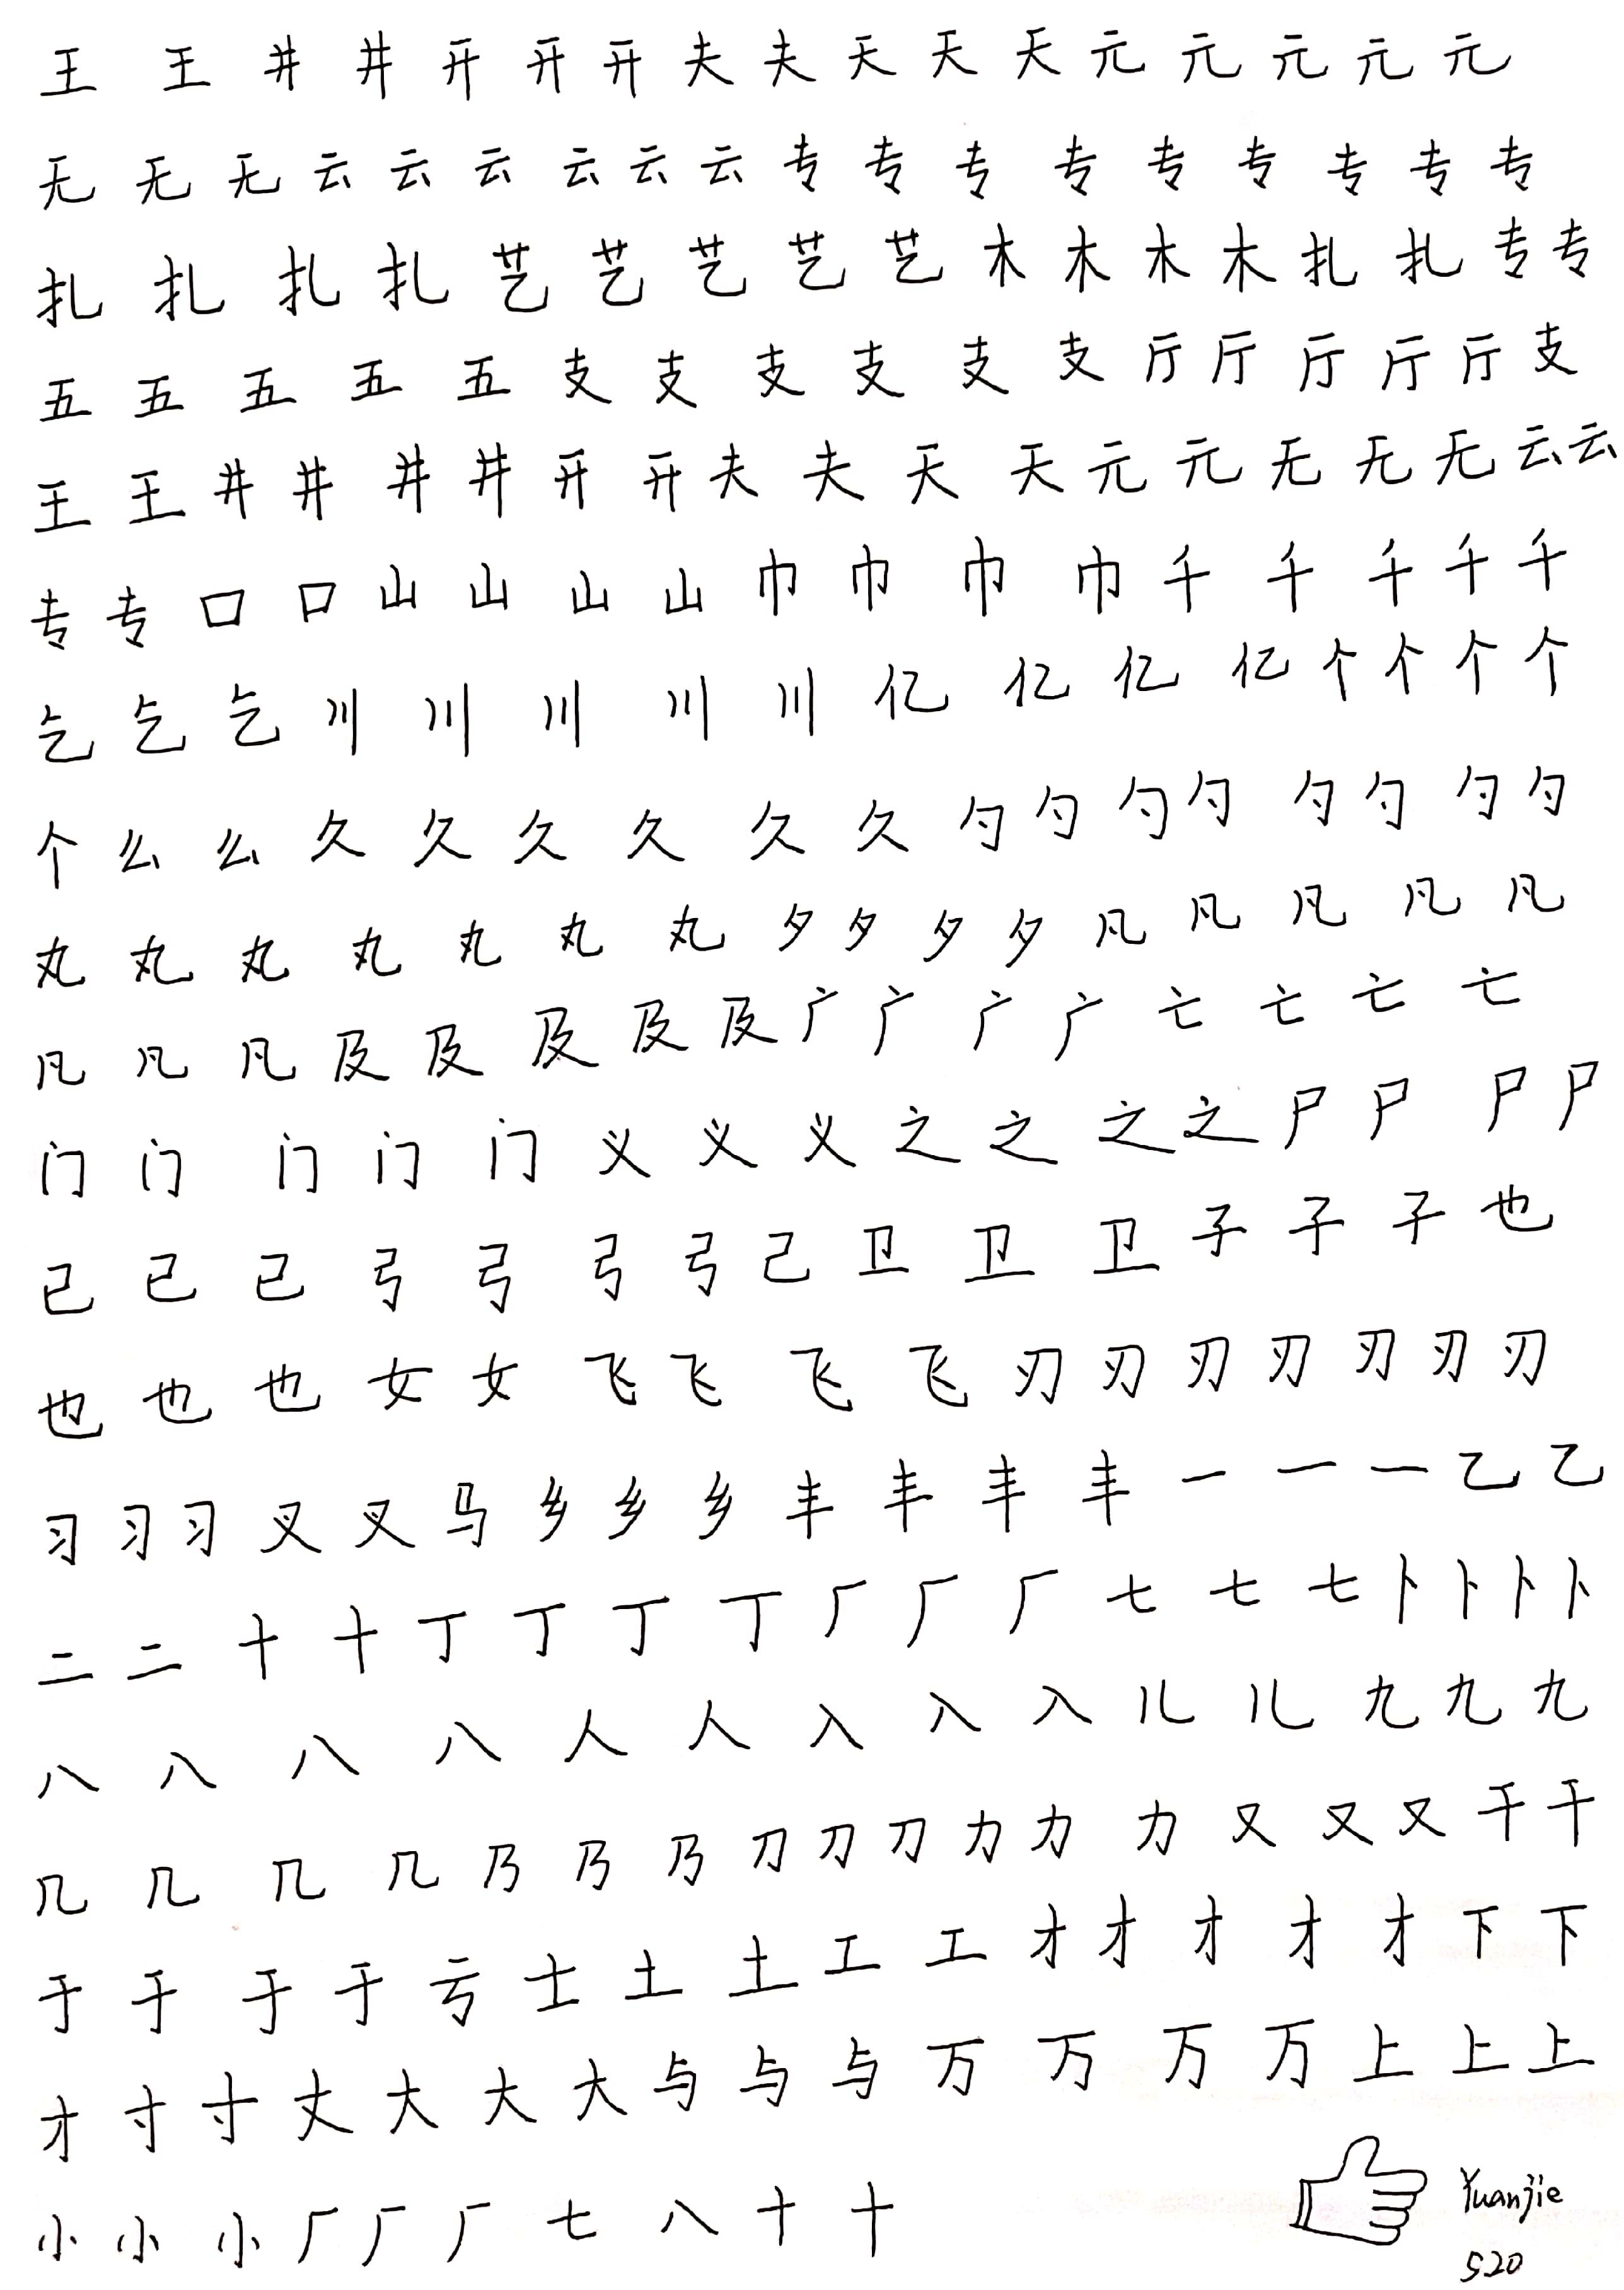 王 王 井 井 开 开 开 夫 夫 天 天 天 元 元 元 元 元
无 无 无 云 云 云 云 云 云 专 专 专 专 专 专 专 专 专
扎 扎 扎 扎 艺 艺 艺 艺 艺 木 木 木 木 扎 扎 专 专
五 五 五 五 五 支 支 支 支 支 支 厅 厅 厅 厅 厅 支
王 王 井 井 井 井 开 开 夫 夫 天 天 元 元 无 无 无 云 云
专 专 口 口 山 山 山 山 巾 巾 巾 巾 千 千 千 千 千
乞 乞 乞 川 川 川 川 川 亿 亿 亿 亿 个 个 个 个
个 么 么 久 久 久 久 久 久 勺 勺 勺 勺 勺 勺 勺 勺
丸 丸 丸 丸 丸 丸 丸 夕 夕 夕 夕 凡 凡 凡 凡 凡
凡 凡 凡 及 及 及 及 及 广 广 广 广 亡 亡 亡 亡
门 门 门 门 门 义 义 义 之 之 之 之 尸 尸 尸 尸
已 已 已 弓 弓 弓 弓 己 卫 卫 卫 子 子 子 也
也 也 也 女 女 飞 飞 飞 飞 刃 刃 刃 刃 刃 刃 刃
习 习 习 叉 叉 马 乡 乡 乡 丰 丰 丰 丰 一 一 一 乙 乙
二 二 十 十 丁 丁 丁 丁 厂 厂 厂 七 七 七 卜 卜 卜 卜
八 八 八 八 人 人 入 入 入 儿 儿 九 九 九
几 几 几 几 乃 乃 乃 刀 刀 刀 力 力 力 又 又 又 干 干
于 于 于 于 亏 士 土 土 工 工 才 才 才 才 才 下 下
才 寸 寸 丈 大 大 大 与 与 与 万 万 万 万 上 上 上
小 小 小 厂 厂 厂 七 八 十 十
Yuanjie
520